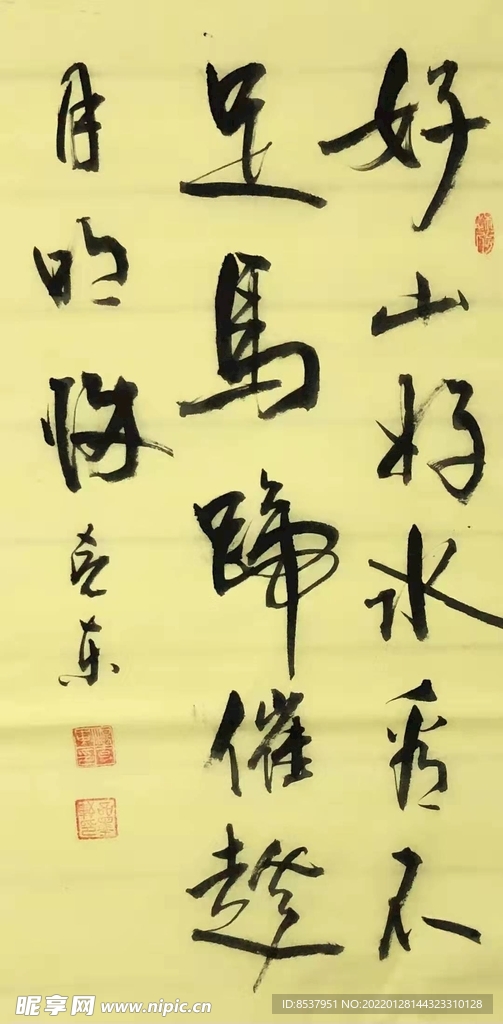 好山好水看不
足馬蹄催趁
月明归
昵享网 www.nipic.cn
ID:8537951 NO:20220128144323310128